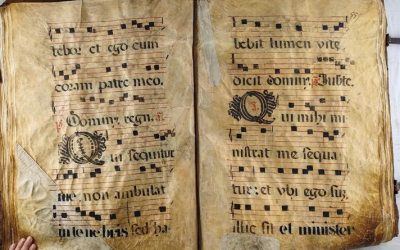 tebor et ego eum
coram patre meo.
Dominꝰ regn.
Qui sequitur
me non ambulat
in tenebris sed ha
bebit lumen vite
dicit dominꝰ. Jubte.
Qui mihi mi
nistrat me sequa
tur: et vbi ego sum
illic sit et minister